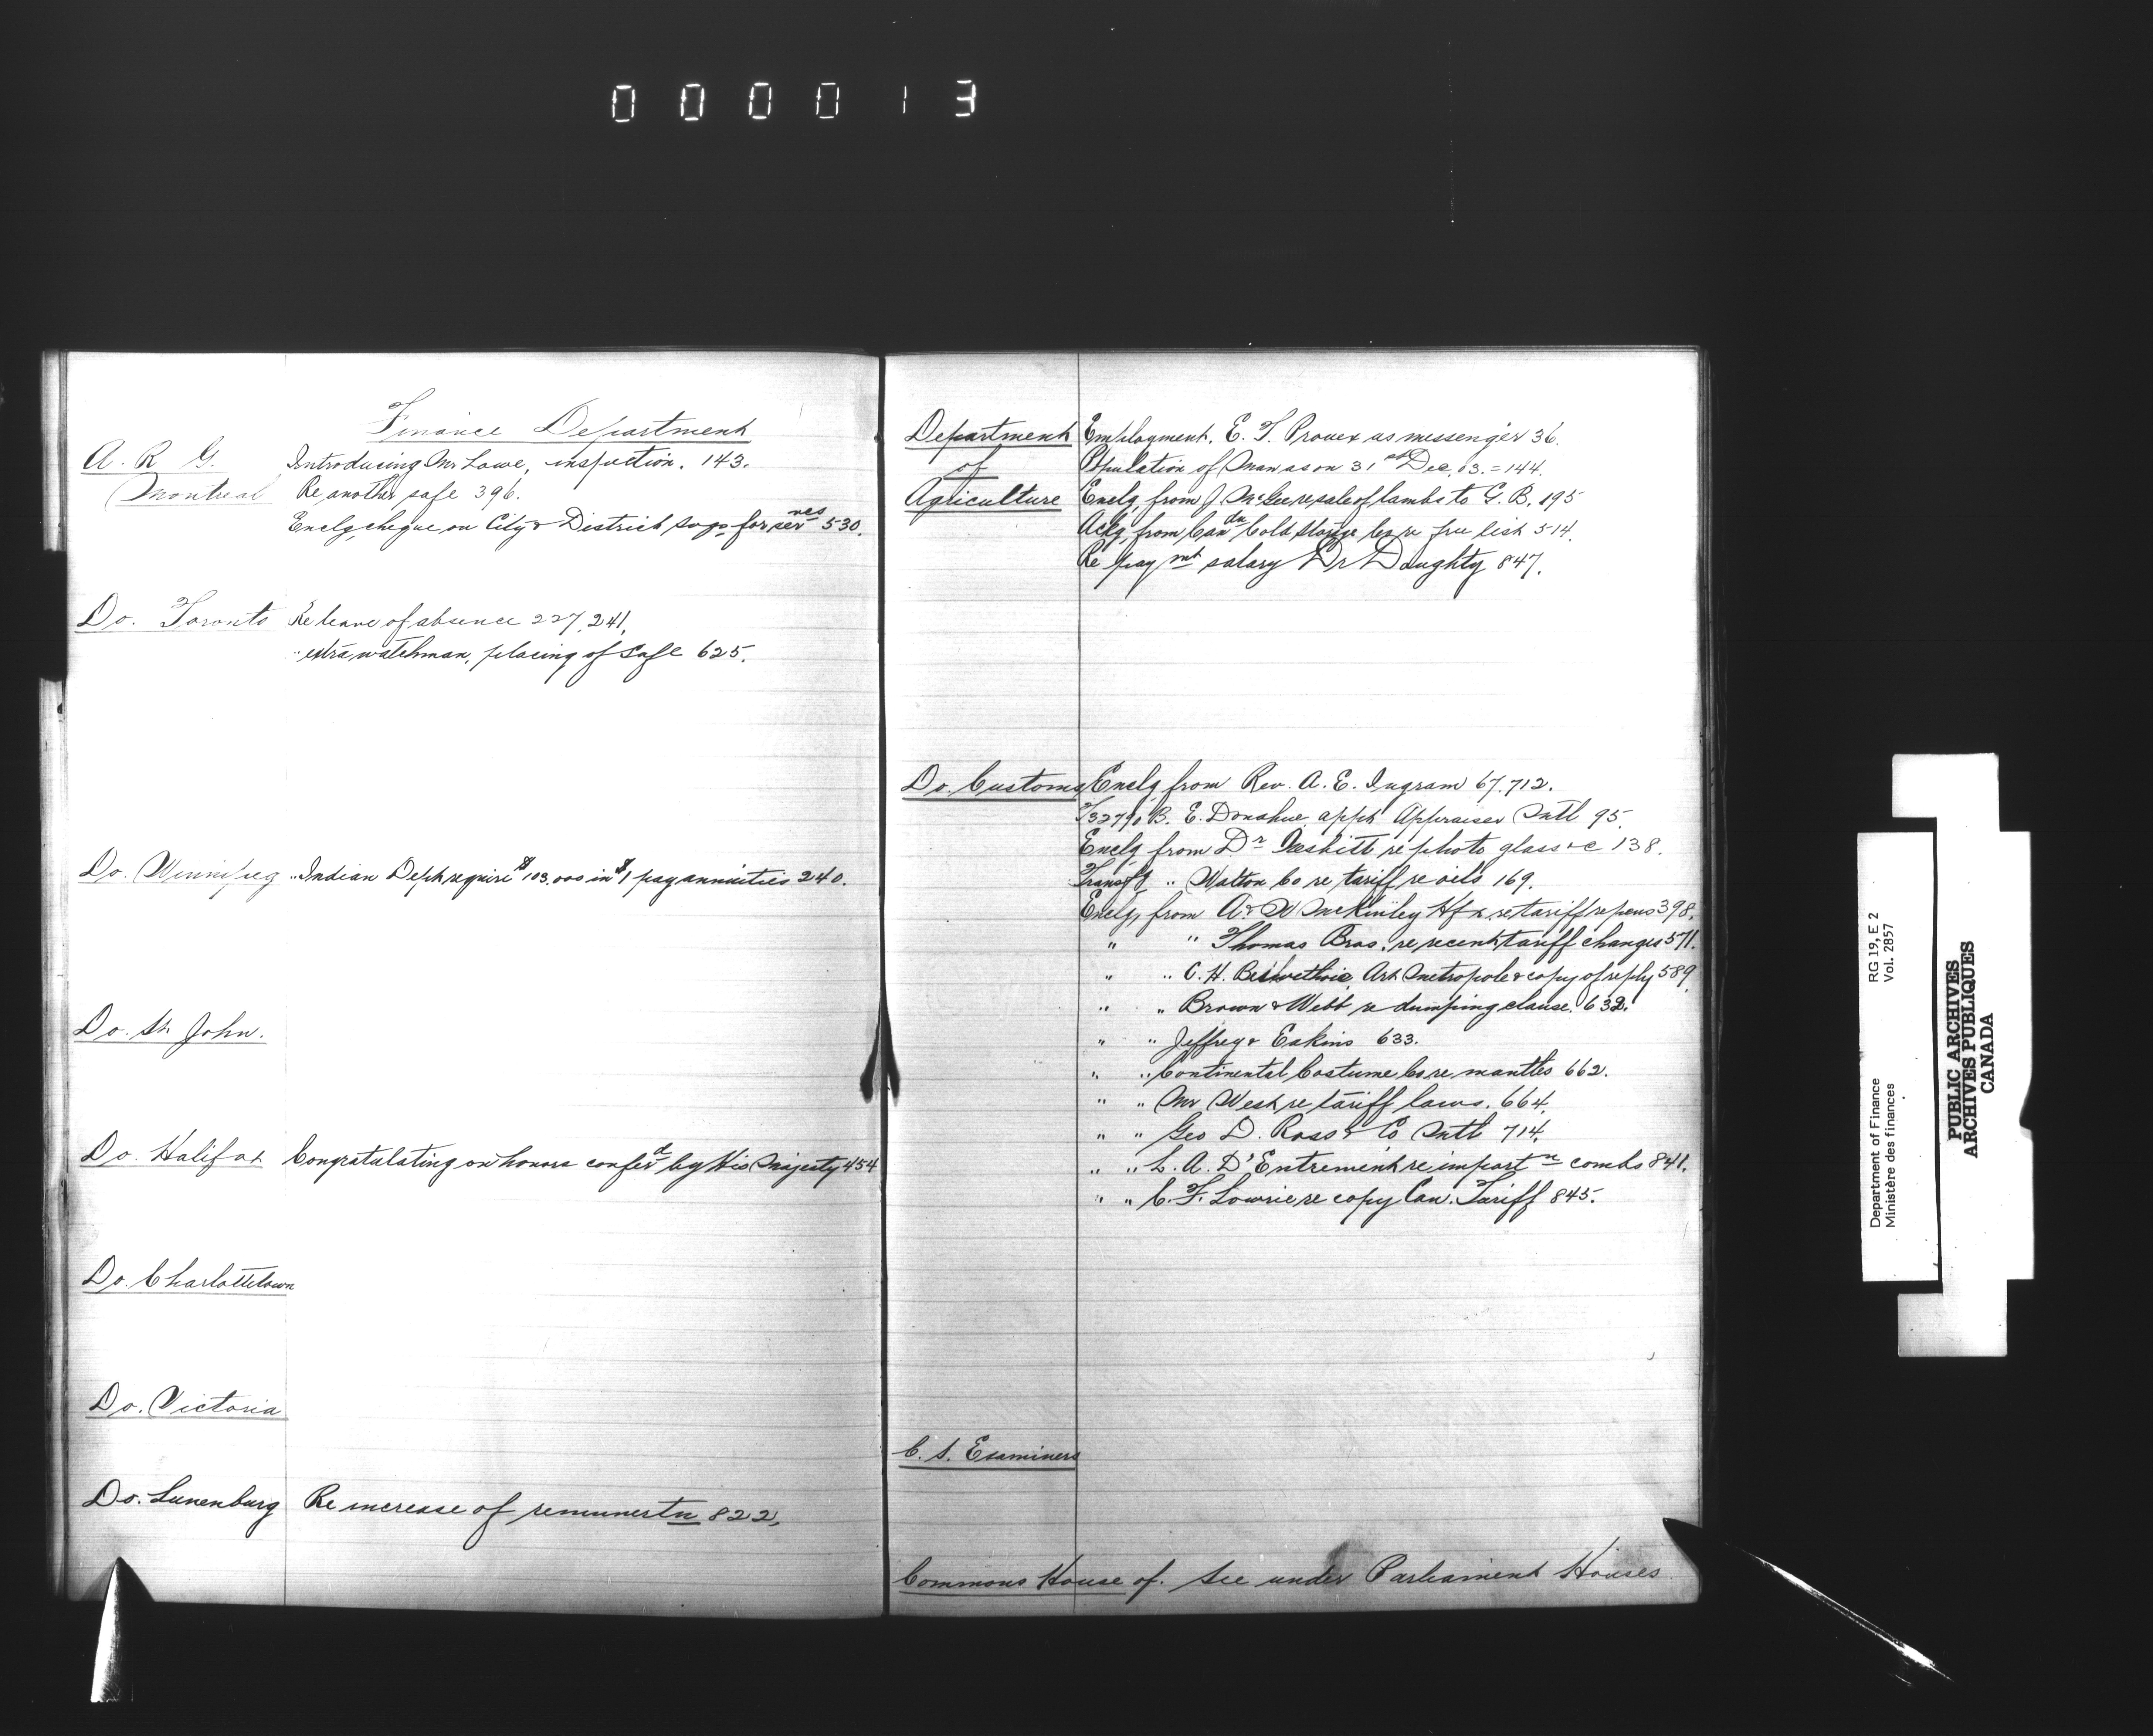 000013
Finance Department
A. R G. Introducing Mr Lowe, inspection. 143.
Montreal Re another safe 396.
Enclg cheque on City & District Svgs for serves 530.
Do. Toronto Re leave of absence 227, 241.
" extra watchman, placing of safe 625.
Do. Winnipeg " Indian Dept require $103,000 in $1 pay annuities 240.
Do. St John.
Do. Halifax Congratulating on honors conferd by His Majesty 454
Do. Charlottetown
Do. Victoria
Do. Lunenburg Re increase of remunertn 822,
Department Employment. E. T. Proux as messenger 36.
of Population of Man as on 31st Dec. 03. = 144.
Agriculture Enclg, from J. McGee re sale of lambs to G. B. 195
Ackg, from Candn Cold Storage Co re free list 514.
Re paymt salary Dr Doughty 847.
Do. Customs Enclg from Rev. A. E. Ingram 67. 712.
B. E. Donahue appt Appraiser Mtl 95.
Enclg from Dr Nesbitt re photo glass &c 138.
" Walton Co re tariff re oils 169.
Enclg, from A & W McKinley Hfx re tariff re pens 398.
" " Thomas Bros. re recent tariff changes 571.
" " C. H. Art Metropole & copy of reply 589.
" " Brown & Webb re dumping clause. 632.
" " Jeffrey & Eakins 633.
" " Continental Costume Co re mantles 662.
" " Mr West re tariff laws. 664.
" " Geo D. Ross & Co Mtl 714.
" " L. A. D'Entremont re importn combs 841.
" " C. F. Lowrie re copy Can. Tariff 845.
C. S. Examiners
Commons House of. See under Parliament Houses.
Department of Finance RG 19, E 2
Ministère des finances Vol. 2857
PUBLIC ARCHIVES
ARCHIVES PUBLIQUES
CANADA